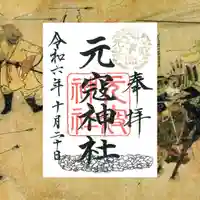 奉拝
元寇神社
令和六年十月二十日